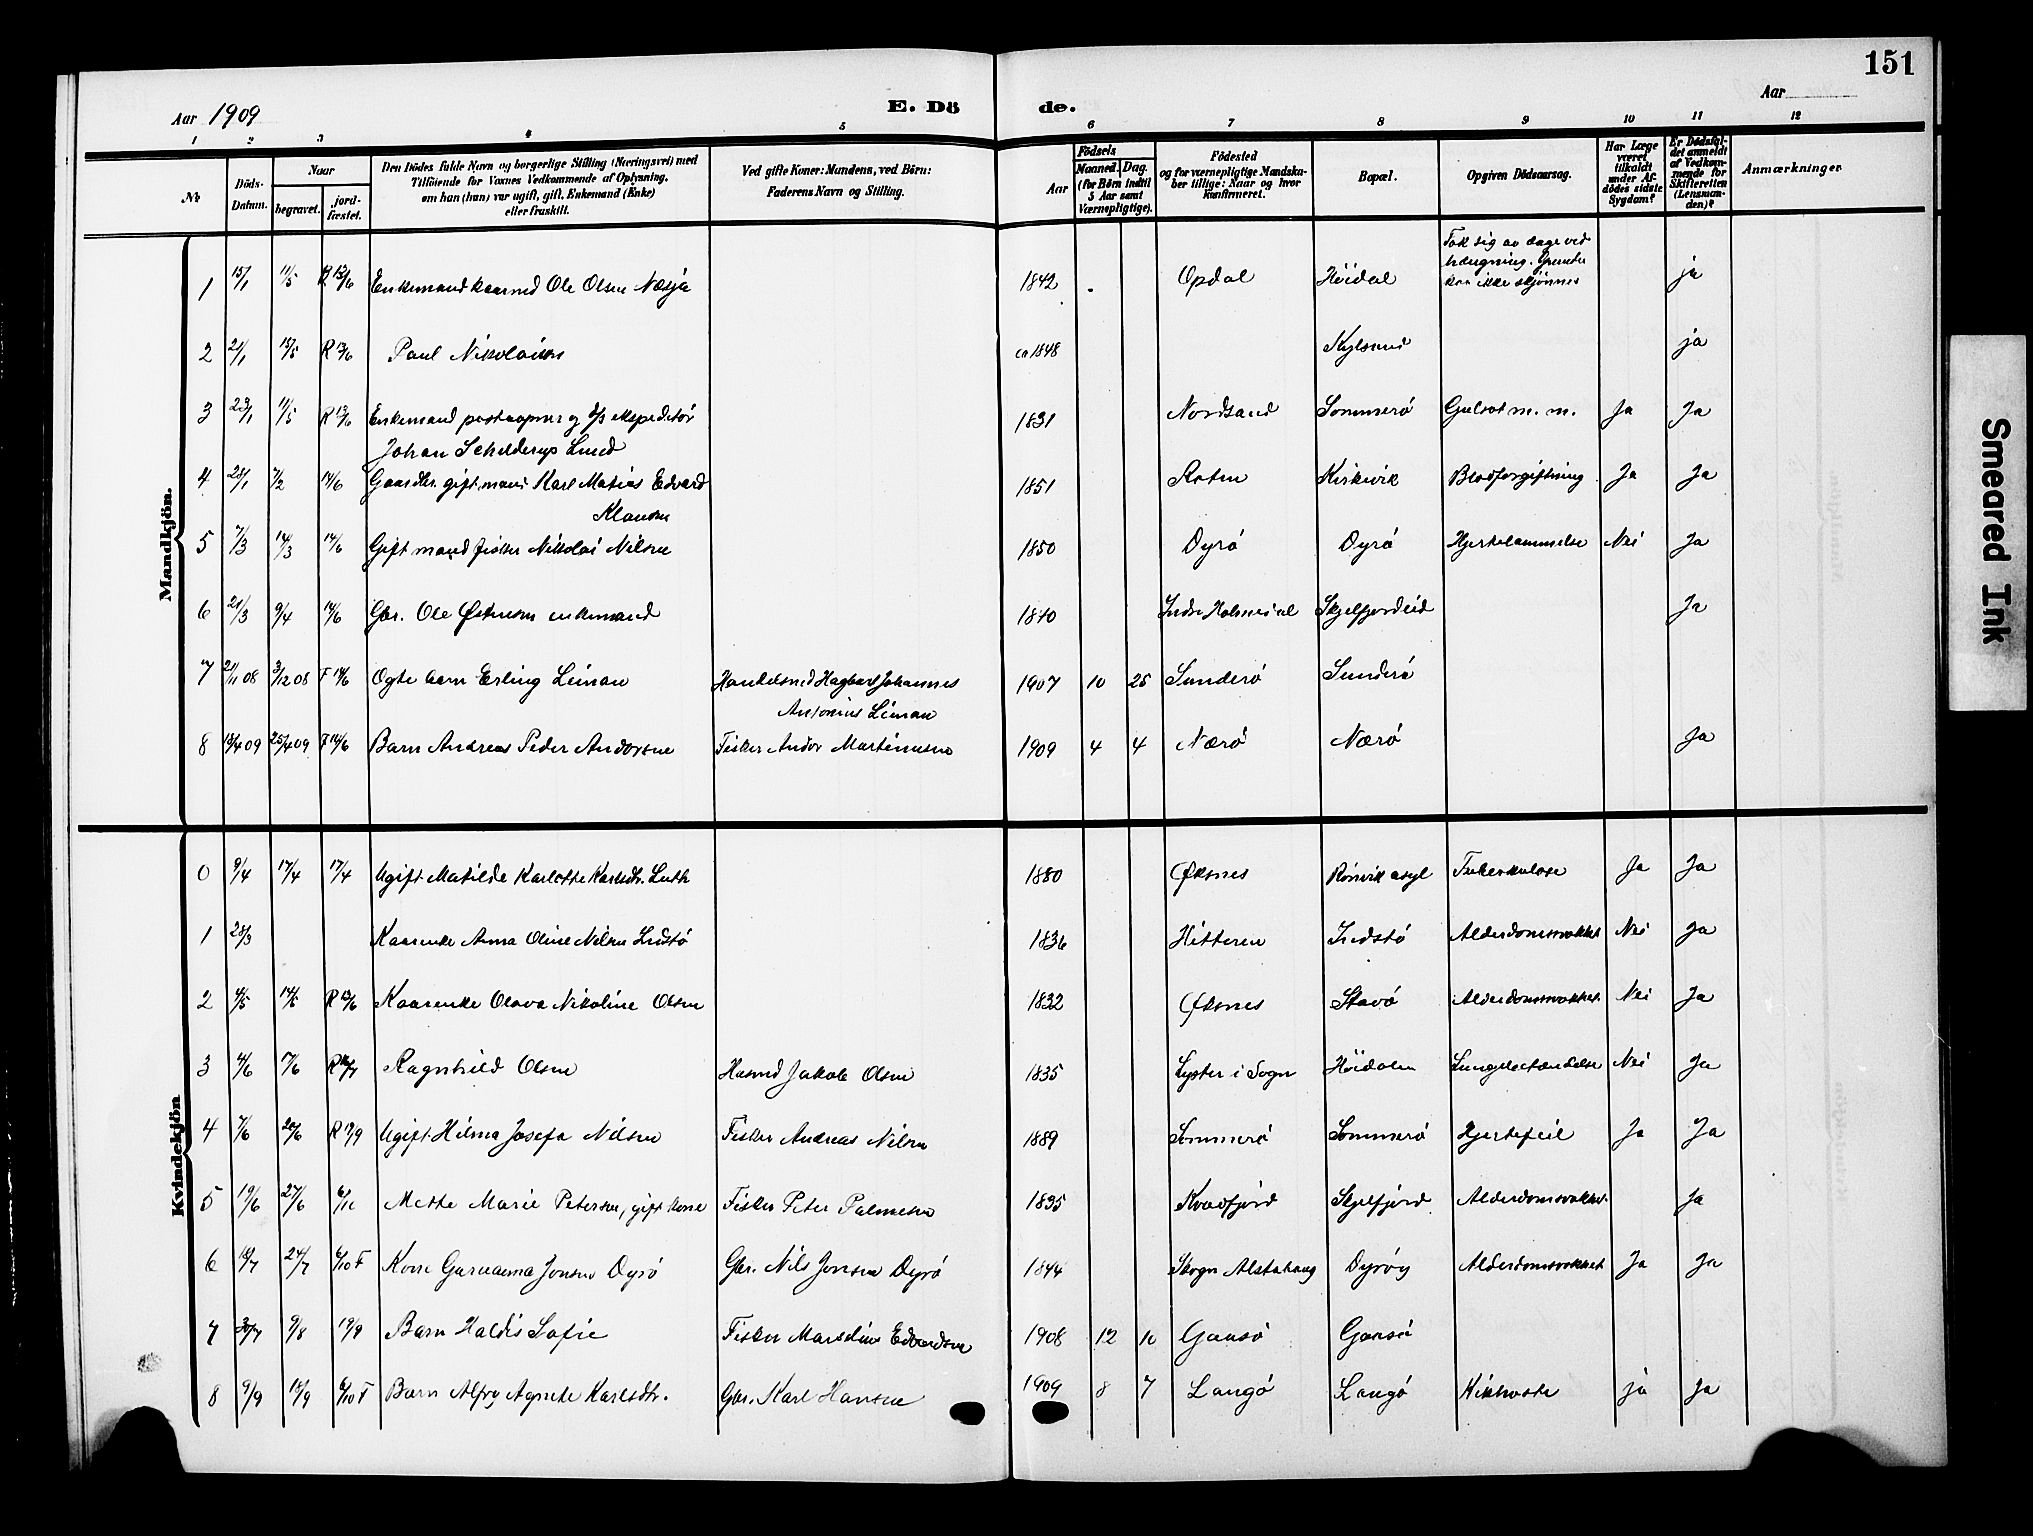 151
Aar 1909
E. Dö de.
Aar
1 2 3 4 5 6 7 8 9 10 11 12
No
Döds-Datum.
Naar
begravet.
jord-fæstet.
Den Dödes fulde Navn og borgerlige Stilling (Næringsvei) med
Tilföiende for Voxnes Vedkommende af Oplysning,
om han (hun) var ugift, gift, Enkemand (Enke)
eller fraskilt.
Ved gifte Koner: Mandens, ved Börn:
Faderens Navn og Stilling.
Födsels
Aar
Maaned. Dag.
(for Börn indtil
5 Aar samt
Værnepligtige).
Födested
og for værnepligtige Mandska-
ber tillige: Naar og hvor
konfirmeret.
Bopæl.
Opgiven Dödsaarsag.
Har Læge
været
tilkaldt
under Af-
dödes sidste
Sygdom?
Er Dödsfal-
det anmeldt
af Vedkom-
mende for
Skifteretten
(Lensman-
den)?
Anmærkninger
Mandkjön.
Tok sig av dage ved
hængning.
1 15/1 11/5 R 13/6 Enkemand Ole Olsen Nesje 1842 Opdal Höidal kan ikke skjønnes ja
2 21/1 15/5 R 13/6 Paul Nikolaisen ca 1848 ja
3 23/1 11/5 R 13/6 Enkemand postaapner og d/s ekspeditör 1831 Nordsand Sommerö Gulsot m. m. Ja Ja
Johan Schelderup Lund
4 28/1 7/2 14/6 Gaardbr. gift mand Karl Matias Edvard 1851 Kirkvik Blodforgiftning Ja Ja
Klausen
5 7/3 14/3 14/6 Gift mand fisker Nikolai Nilsen 1850 Dyrö Dyrö Hjertelammelse Nei Ja
6 21/3 9/4 14/6 Gbr. Ole Østensen enkemand 1840 Indre Skjelfjordeid Ja
7 21/11 08 3/12 08 F 14/6 Ogte barn Erling Liman Handelsmd Hagbart Johannes 1907 10 25 Sunderö Sunderö
Antonius Liman
8 15/4 09 25/4 09 F 14/6 Barn Andreas Peder Andorsen Fisker Andor Martinusen 1909 4 4 Nærö Nærö Ja
Kvindekjön
0 9/4 17/4 17/4 Ugift Matilde Karlotte Karlsdtr. Luth 1880 Øksnes Rönvik asyl Tuberkulose Ja Ja
1 28/3 Kaarenke Anna Oline Nilsen Indstö 1836 Hitteren Indstö Alderdomssvakhet Nei Ja
2 4/5 14/5 R 13/6 Kaarenke Olava Nikoline Olsen 1832 Øksnes Stavö Alderdomssvakhet Nei Ja
3 4/6 17/6 Ragnhild Olsen Husmd Jakob Olsen 1835 Lyster i Sogn Höidalen Lungebetændelse Nei Ja
4 7/6 20/6 R 19/9 Ugift Hilma Josefa Nilsen Fisker Andreas Nilsen 1889 Sommerö Sommerö Hjertefeil Ja Ja
5 19/6 27/6 6/10 Mette Marie Petersen, gift kone Fisker Peter Palmesen 1835 Kvadfjord Skjelfjord Alderdomssvakhet Ja
6 18/7 24/7 6/10 F Kone Jonsen Dyrö Gbr. Nils Jonsen Dyrö 1844 Skogn Alstahaug Dyröy Alderdomssvakhet Ja Ja
7 30/7 9/8 19/9 Barn Haldis Sofie Fisker Marselius Edvardsen 1908 12 10 Gaasö Gaasö
8 9/9 18/9 6/10 F Barn Alfry Agnete Karlsdtr. Gbr. Karl Hansen 1909 8 7 Langö Langö Kikhoste ja ja
Smeared Ink